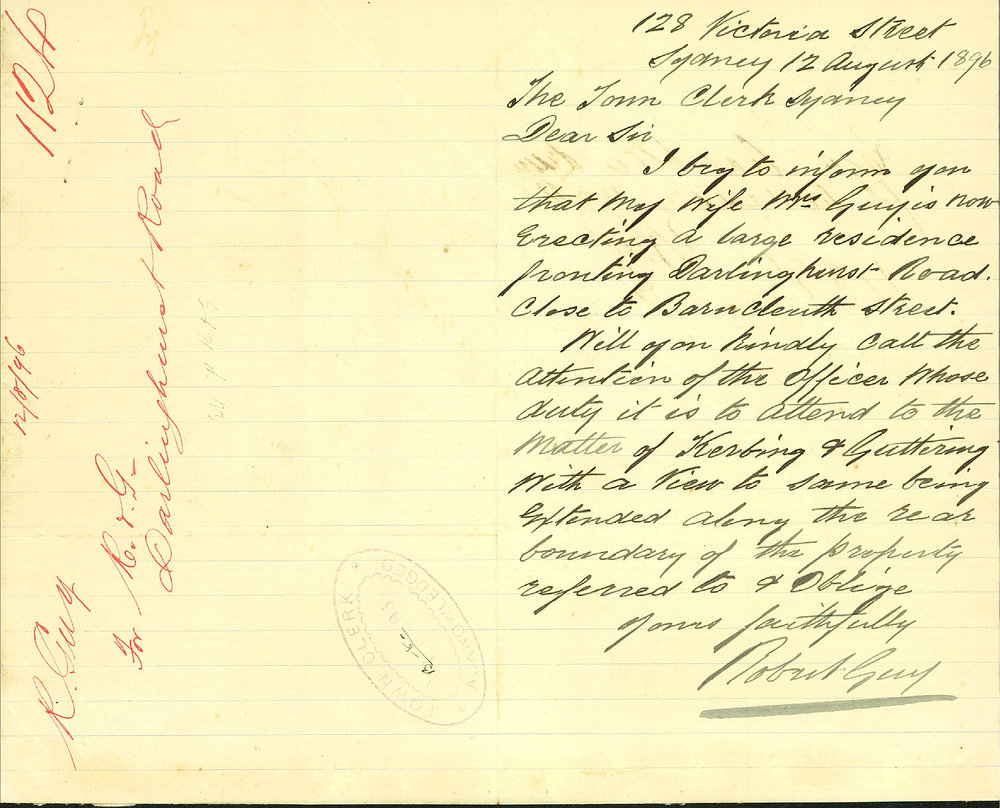 1124
12/8/96
R. Guy
For K. & G.
Darlinghurst Road
TOWN CLERK
ACKNOWLEDGED
128 Victoria Street
Sydney 12 August 1896
The Town Clerk Sydney
Dear Sir
I beg to inform you
that my Wife Mrs Guy is now
Erecting a large residence
fronting Darlinghurst Road.
Close to Barncleuth Street.
Will you kindly call the
attention of the Officer Whose
duty it is to attend to the
Matter of Kerbing & Guttering
With a View to same being
Extended along the rear
boundary of the property
referred to & Oblige
yours faithfully
Robert Guy